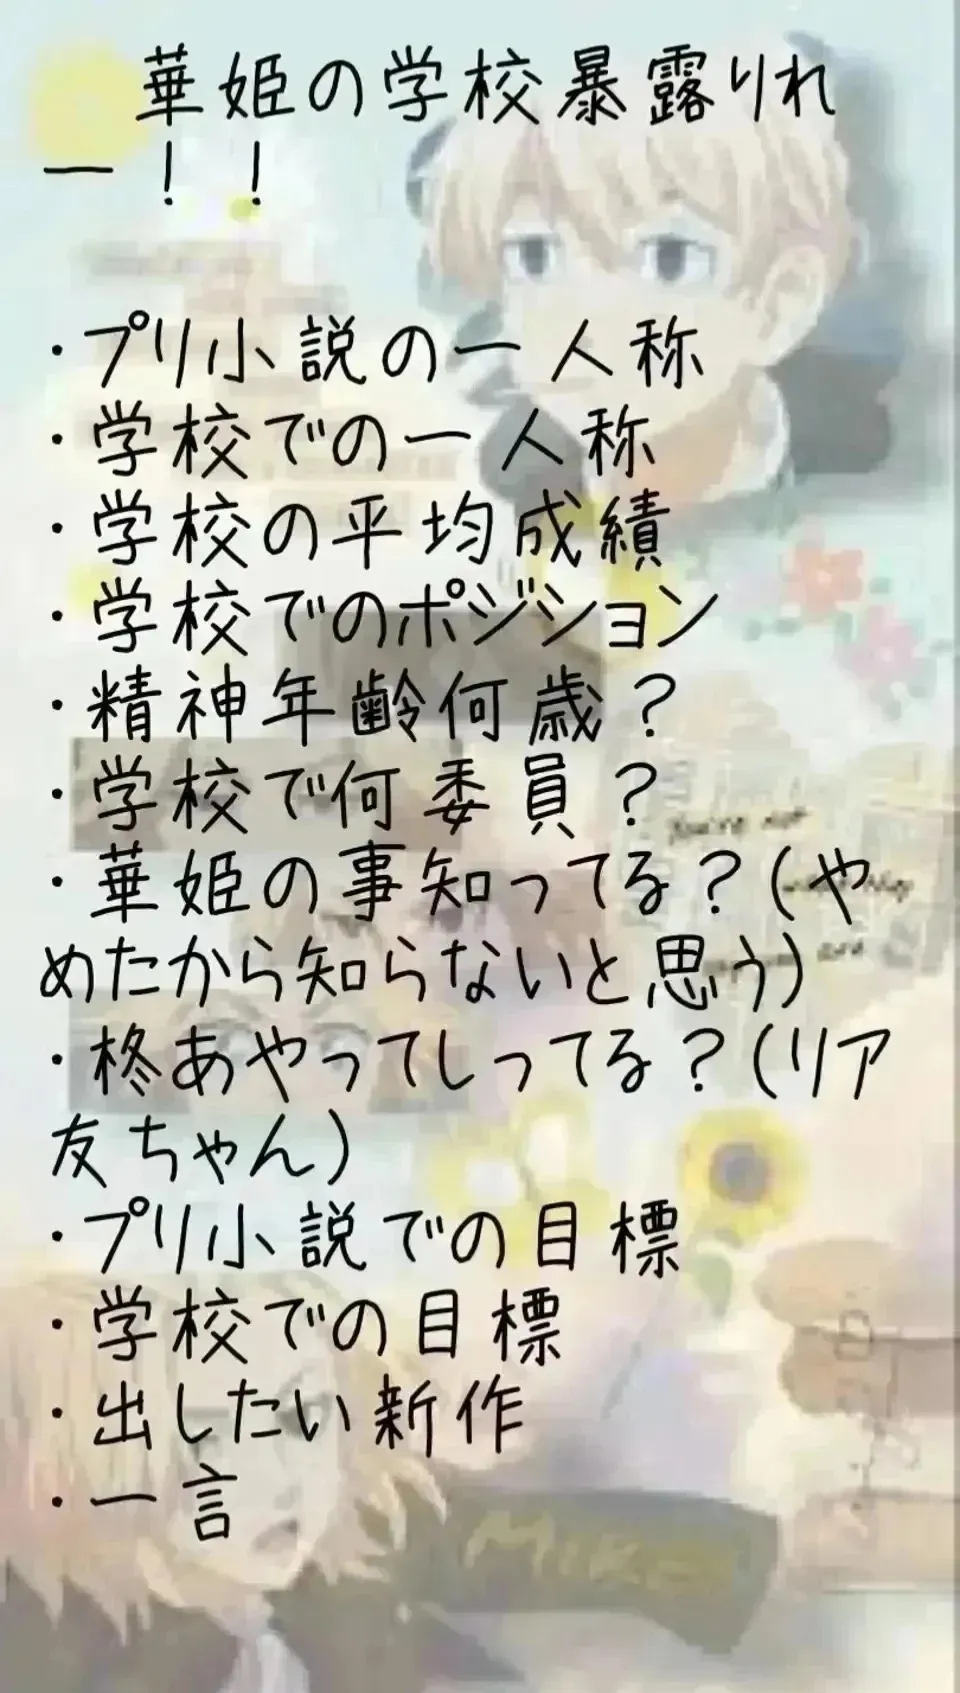 華姫の学校暴露りれ
ー！！
・プリ小説の一人称
・学校での一人称
・学校の平均成績
・学校でのポジション
・精神年齢何歳？
・学校で何委員？
・華姫の事知ってる？(や
めたから知らないと思う)
・柊あやってしってる？(リア
友ちゃん)
・プリ小説での目標
・学校での目標
・出したい新作
・一言
You're not
are